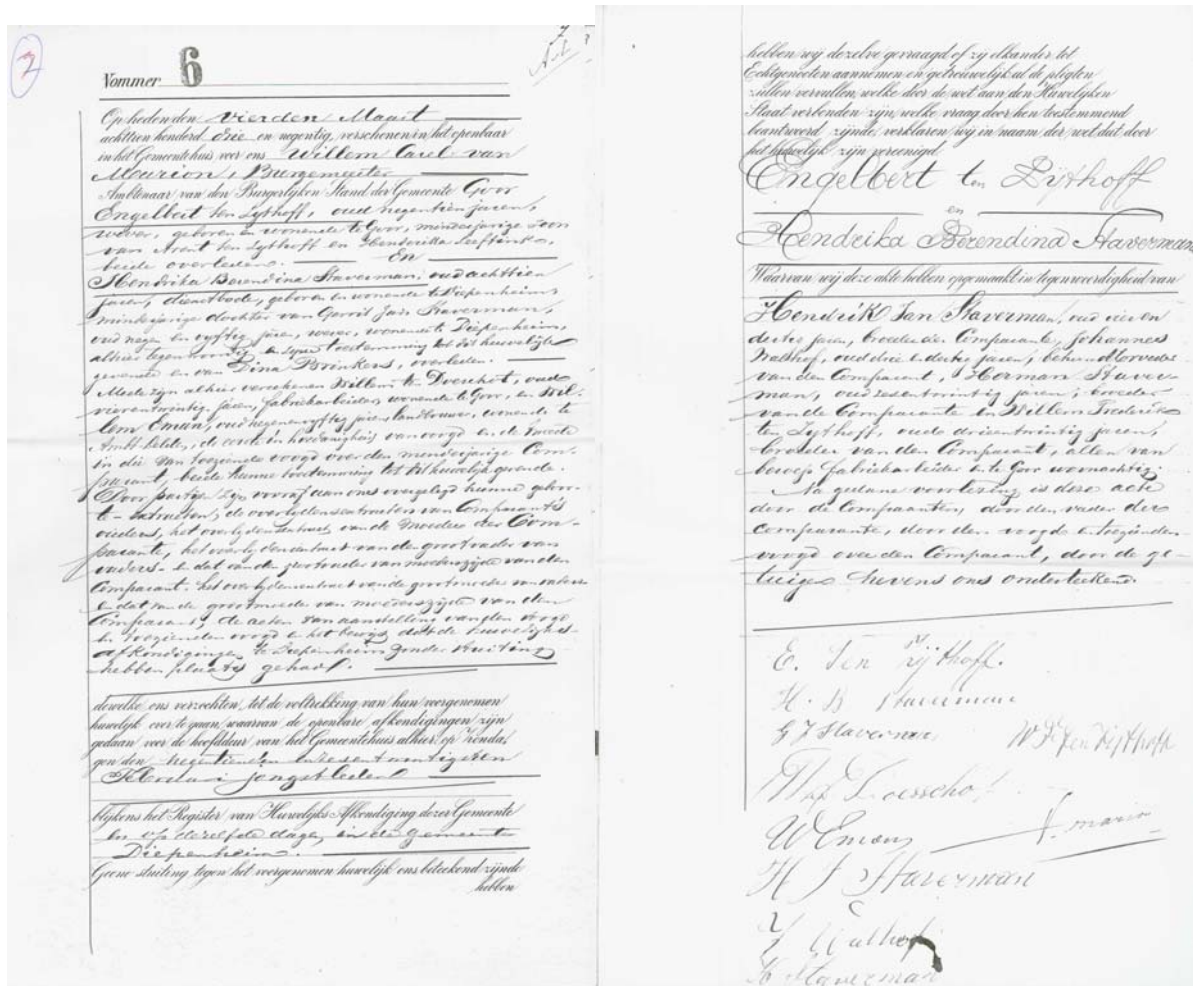 7
7
Nommer 6
Op heden den vierden Maart
achttien honderd drie en negentig, verschenen in het openbaar
in het Gemeentehuis voor ons Willem Carel van
Marion, Burgemeester
Ambtenaar van den Burgerlijken Stand der Gemeente Goor
Engelbert ten Zijthoff, oud negentien jaren,
wever, geboren en wonende te Goor, minderjarige zoon
van Arent ten Zijthoff en Henderika Leeftink,
beide overleden. En
Hendrika Berendina Staverman, oud achttien
jaren, dienstbode, geboren en wonende te Diepenheim,
minderjarige dochter van Gerrit Jan Staverman,
oud negen en vijftig jaren, wever, wonende te Diepenheim,
alhier tegenwoordig en zijne toestemming tot dit huwelijk
gevende en van Dina Brinkers, overleden.
Mede zijn alhier verschenen Willem te Doeschot, oud
vierentwintig jaren, fabriekarbeider, wonende te Goor, en Wil-
lem Eman, oud negenenvijftig jaren, landbouwer, wonende te
Ambt Delden, de eerste in hoedanigheid van voogd en de tweede
in die van toeziende voogd over den minderjarige Com-
parant, beide hunne toestemming tot dit huwelijk gevende.
Door partijen zijn vooraf aan ons overgelegd hunne geboor-
te-extracten, de overlijdensextracten van Comparants
ouders, het overlijdensextract van de moeder der Com-
parante, het overlijdensextract van de grootvader van
vaders- en dat van den grootvader van moederszijde van den
Comparant, het overlijdensextract van de grootmoeder van vaders-
en dat van de grootmoeder van moederszijde van den
Comparant, de acten van aanstelling van den voogd
en toezienden voogd en het bewijs dat de huwelijks-
afkondigingen te Diepenheim zonder stuiting
hebben plaats gehad.
dewelke ons verzochten, tot de voltrekking van hun voorgenomen
huwelijk over te gaan, waarvan de openbare afkondigingen zijn
gedaan voor de hoofddeur van het Gemeentehuis alhier, op Zonda-
gen den negentienden en zesentwintigsten
Februari jongstleden
blijkens het Register van Huwelijks Afkondiging dezer Gemeente
en op dezelfde dagen in de gemeente
Diepenheim.
Geene stuiting tegen het voorgenomen huwelijk ons beteekend zijnde
hebben
hebben wij dezelve gevraagd of zij elkander tot
Echtgenooten aannemen en getrouwelijk al de pligten
zullen vervullen, welke door de wet aan den Huwelijken
Staat verbonden zijn, welke vraag door hen toestemmend
beantwoord zijnde, verklaren wij in naam der wet dat door
het huwelijk zijn vereenigd
Engelbert ten Zijthoff
en
Hendrika Berendina Staverman
Waarvan wij deze akte hebben opgemaakt in tegenwoordigheid van
Hendrik Jan Staverman, oud vier en
dertig jaren, broeder der Comparante, Johannes
Walhof, oud drie en dertig jaren, behuwdbroeder
van den Comparant, Herman Staver-
man, oud zesentwintig jaren, broeder
van de Comparante en Willem Frederik
ten Zijthoff, oud drieentwintig jaren,
broeder van den Comparant, allen van
beroep fabriekarbeider en te Goor woonachtig.
Na gedane voorlezing is deze acte
door de Comparanten, door den vader der
comparante, door den voogd en toezienden
voogd over den Comparant, door de ge-
tuigen nevens ons onderteekend.
E. Ten Zijthoff.
H. B Staverman
G J Staverman
W F Ten Zijthoff
W te Doesschot
W Eman
v. marion
H J Staverman
J Walhof
H Staverman